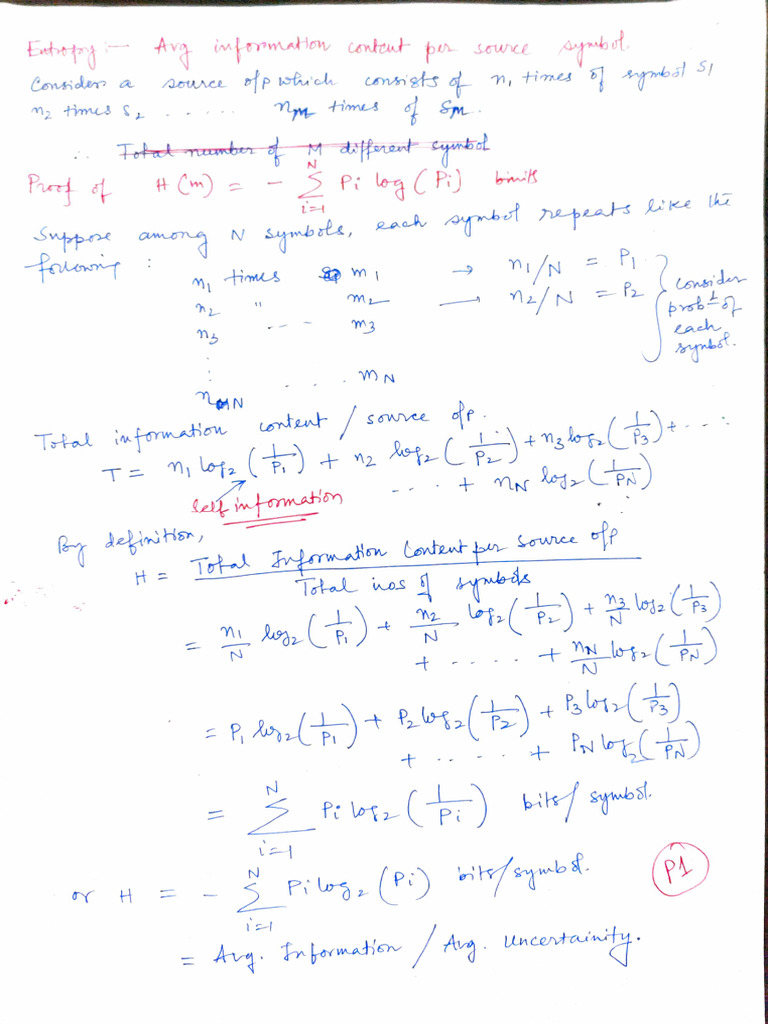 Entropy:- Avg information content per source symbol.
Consider a source o/p which consists of n1 times of symbol s1
n2 times s2 ..... nm times of Sm.
∴ Total number of M different symbol
Proof of H(m) = - Σ_{i=1}^{N} Pi log (Pi) binits
Suppose among N symbols, each symbol repeats like the
following :
n1 times m1 → n1/N = P1
n2 " m2 → n2/N = P2 } consider probl of each symbol.
n3 -- - m3
⋮
nN .... mN
Total information content / source o/p.
T = n1 log2 (1/P1) + n2 log2 (1/P2) + n3 log2 (1/P3) + ....
.... + nN log2 (1/PN)
Self information
By definition,
H = Total Information Content per source o/p / Total nos of symbols
= n1/N log2 (1/P1) + n2/N log2 (1/P2) + n3/N log2 (1/P3)
+ ..... + nN/N log2 (1/PN)
= P1 log2 (1/P1) + P2 log2 (1/P2) + P3 log2 (1/P3)
+ ..... + PN log2 (1/PN)
= Σ_{i=1}^{N} Pi log2 (1/Pi) bits/symbol.
or H = - Σ_{i=1}^{N} Pi log2 (Pi) bits/symbol.
P1
= Avg. Information / Avg. Uncertainity.